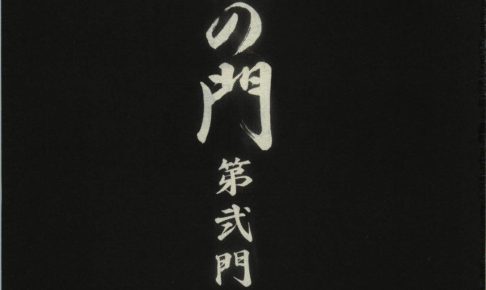 の門
第弐門